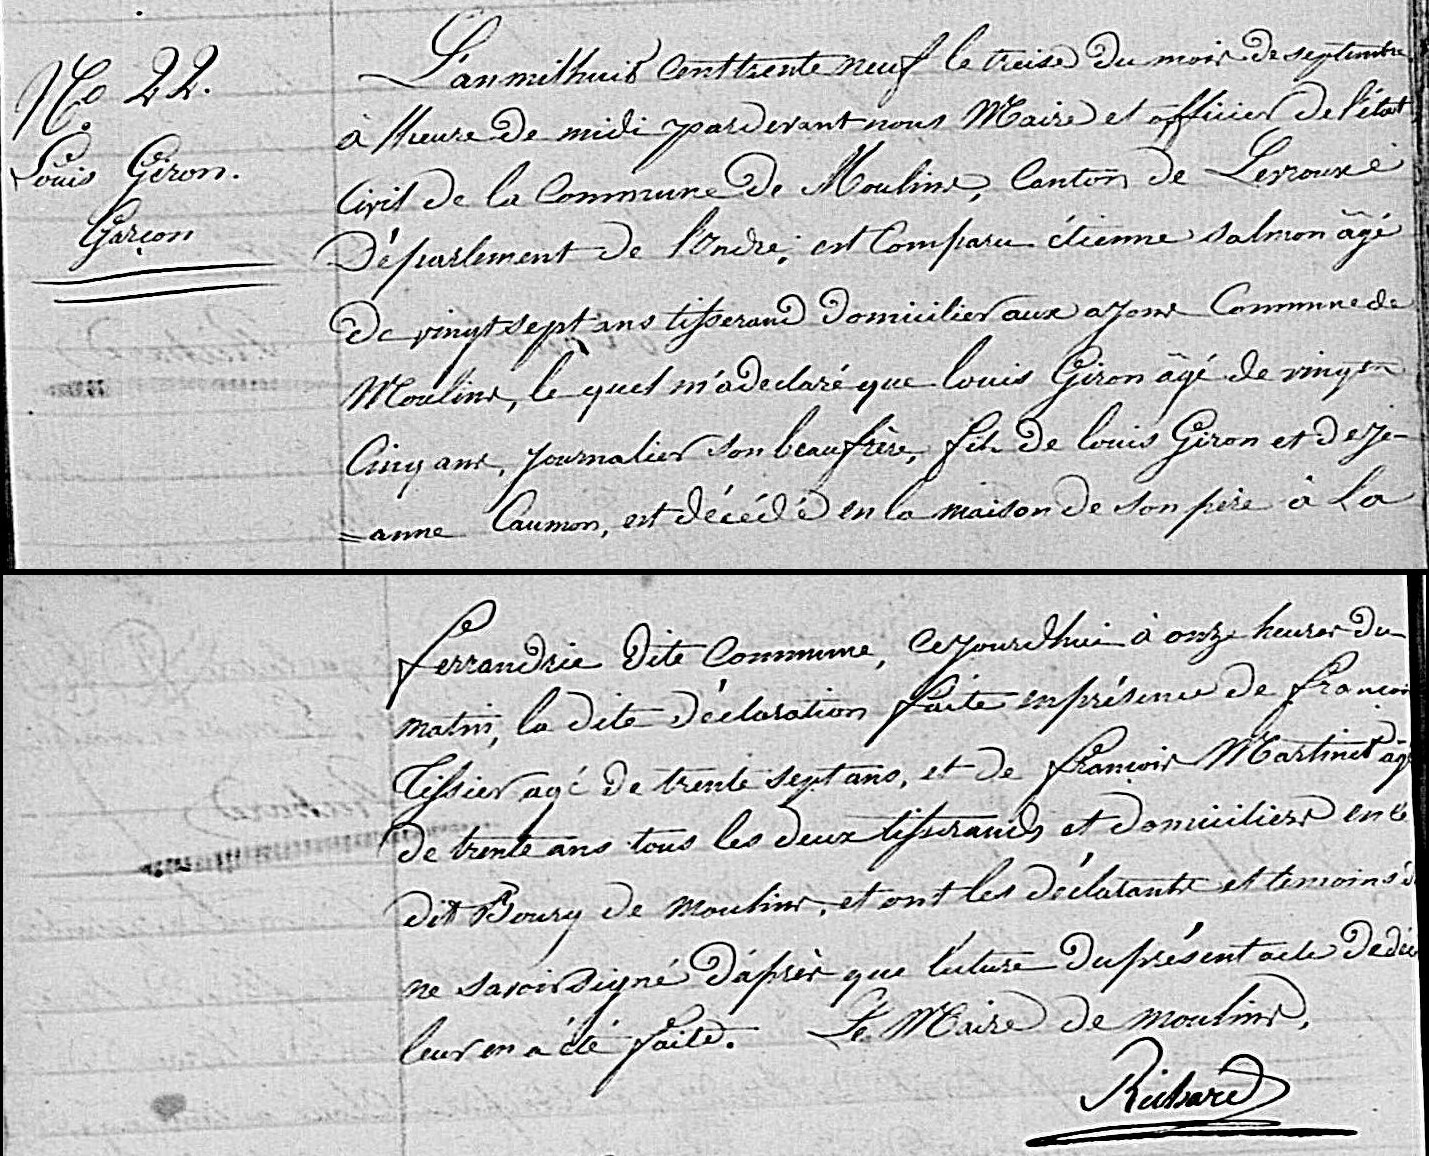 No. 22.
Louis Giron.
Garçon
L'an mil huit cent trente neuf le treise du mois de septembre
à lheure de midi par devant nous Maire et officier de l'état
Civil de la Commune de Moulins, Canton de Levroux é
Département de l'Indre, est Comparu étienne salmon âgé
De vingt sept ans tisserand domicilier aux ajons Commune de
Moulins, le quel m'a declaré que louis Giron âgé de vingt
Cinq ans, journalier son beaufrère, fils de louis Giron et de je-
=anne Caumon, est décédé en la maison de son père à La
ferrandrie dite Commune, Cejourdhui à onze heures du
matin, la dite déclaration faite en présence de françois
Tissier agé de trente sept ans, et de françois Martinet âgé
de trente ans tous les deux tisserands et domiciliers en ce
dit Bourg de moulins, et ont les déclarants et temoins
ne savoir signé d'après que lulure du présent acte de
leur en a été faite. Le Maire de moulins,
Richard